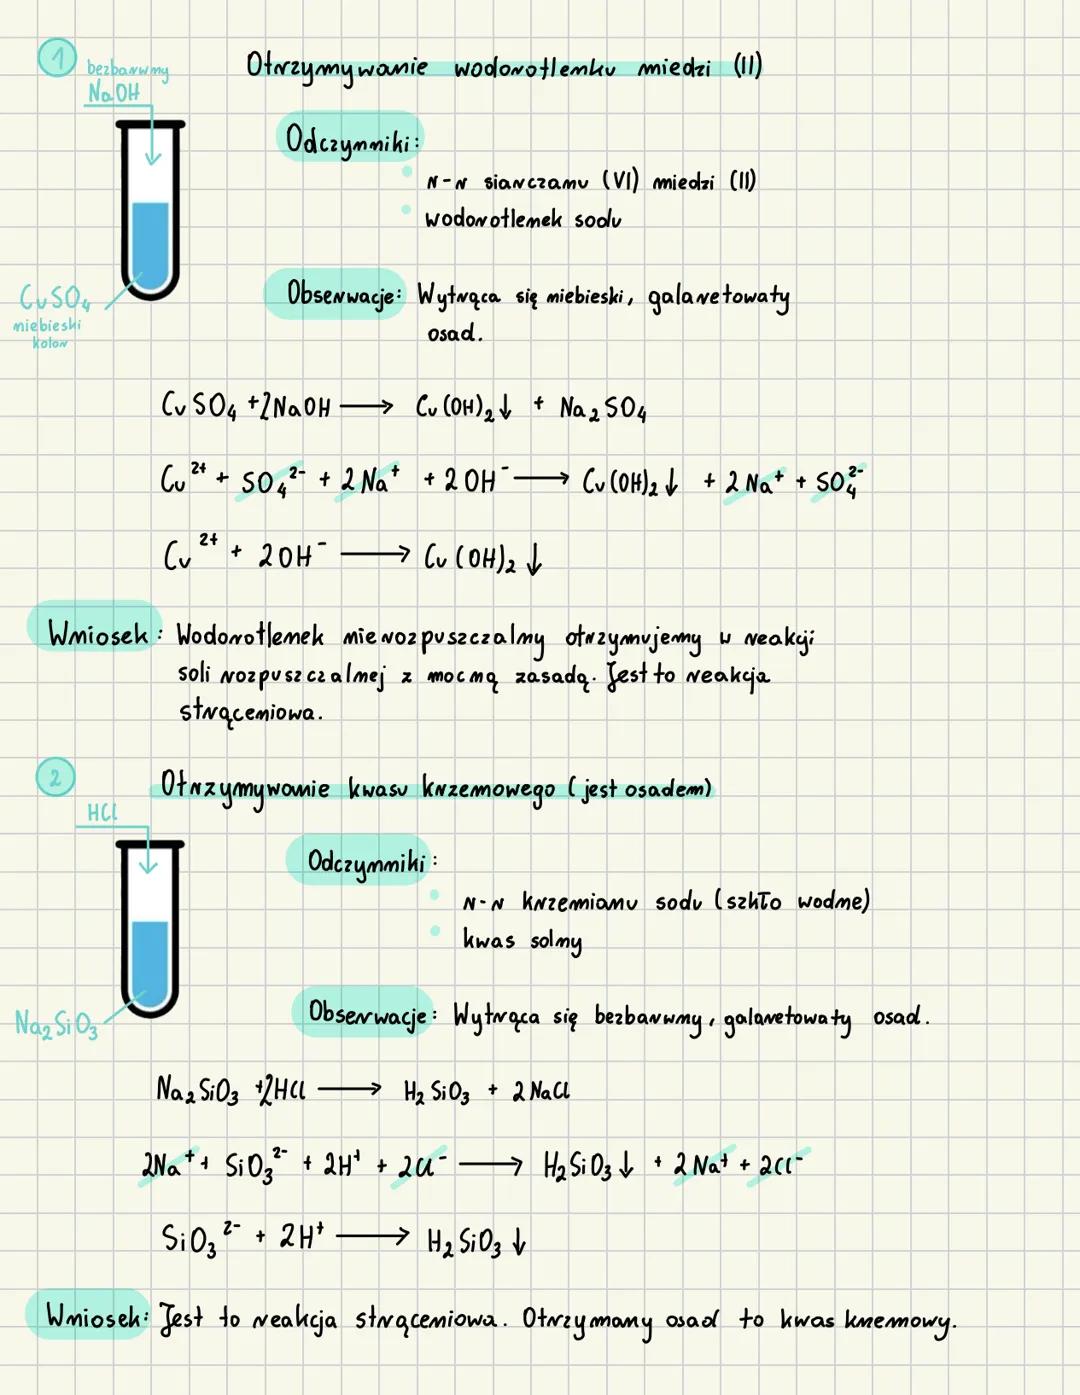 1
bezbarwny
NaOH
Otrzymywanie wodorotlenku miedzi (II)
Odczynniki:
r-r siarczanu (VI) miedzi (II)
wodorotlenek sodu
CuSO₄
niebieski
kolor
Obserwacje: Wytrąca się niebieski, galaretowaty
osad.
CuSO₄ + 2NaOH ⟶ Cu(OH)₂↓ + Na₂SO₄
Cu²⁺ + SO₄²⁻ + 2Na⁺ + 2OH⁻ ⟶ Cu(OH)₂↓ + 2Na⁺ + SO₄²⁻
Cu²⁺ + 2OH⁻ ⟶ Cu(OH)₂↓
Wniosek: Wodorotlenek nierozpuszczalny otrzymujemy w reakcji
soli rozpuszczalnej z mocną zasadą. Jest to reakcja
strąceniowa.
2
HCl
Otrzymywanie kwasu krzemowego (jest osadem)
Odczynniki:
r-r krzemianu sodu (szkło wodne)
kwas solny
Na₂SiO₃
Obserwacje: Wytrąca się bezbarwny, galaretowaty osad.
Na₂SiO₃ + 2HCl ⟶ H₂SiO₃ + 2NaCl
2Na⁺ + SiO₃²⁻ + 2H⁺ + 2Cl⁻ ⟶ H₂SiO₃↓ + 2Na⁺ + 2Cl⁻
SiO₃²⁻ + 2H⁺ ⟶ H₂SiO₃↓
Wniosek: Jest to reakcja strąceniowa. Otrzymany osad to kwas kremowy.